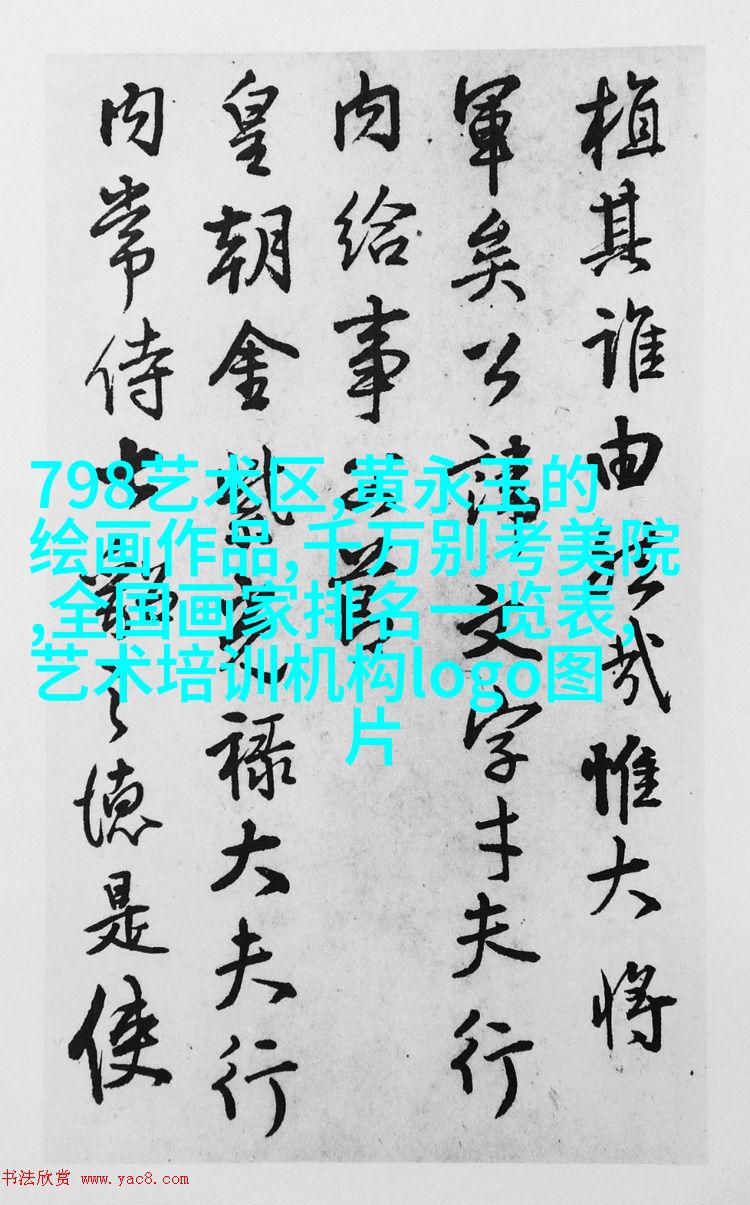 植其谁由兹哉惟大将
軍矣公諱文字才夫行
内给事
皇朝金
禄大夫行
内常侍
之德是使
798艺术区,黄永玉的
绘画作品,千万别考美院
,全国画家排名一览表,
艺术培训机构logo图
片
书法欣赏 www.yac8.com